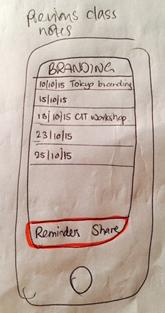 Previous class
notes
BRANDING
10/10/15 Tokyo branding
15/10/15
18/10/15 CIT Workshop
23/10/15
25/10/15
Reminder Share